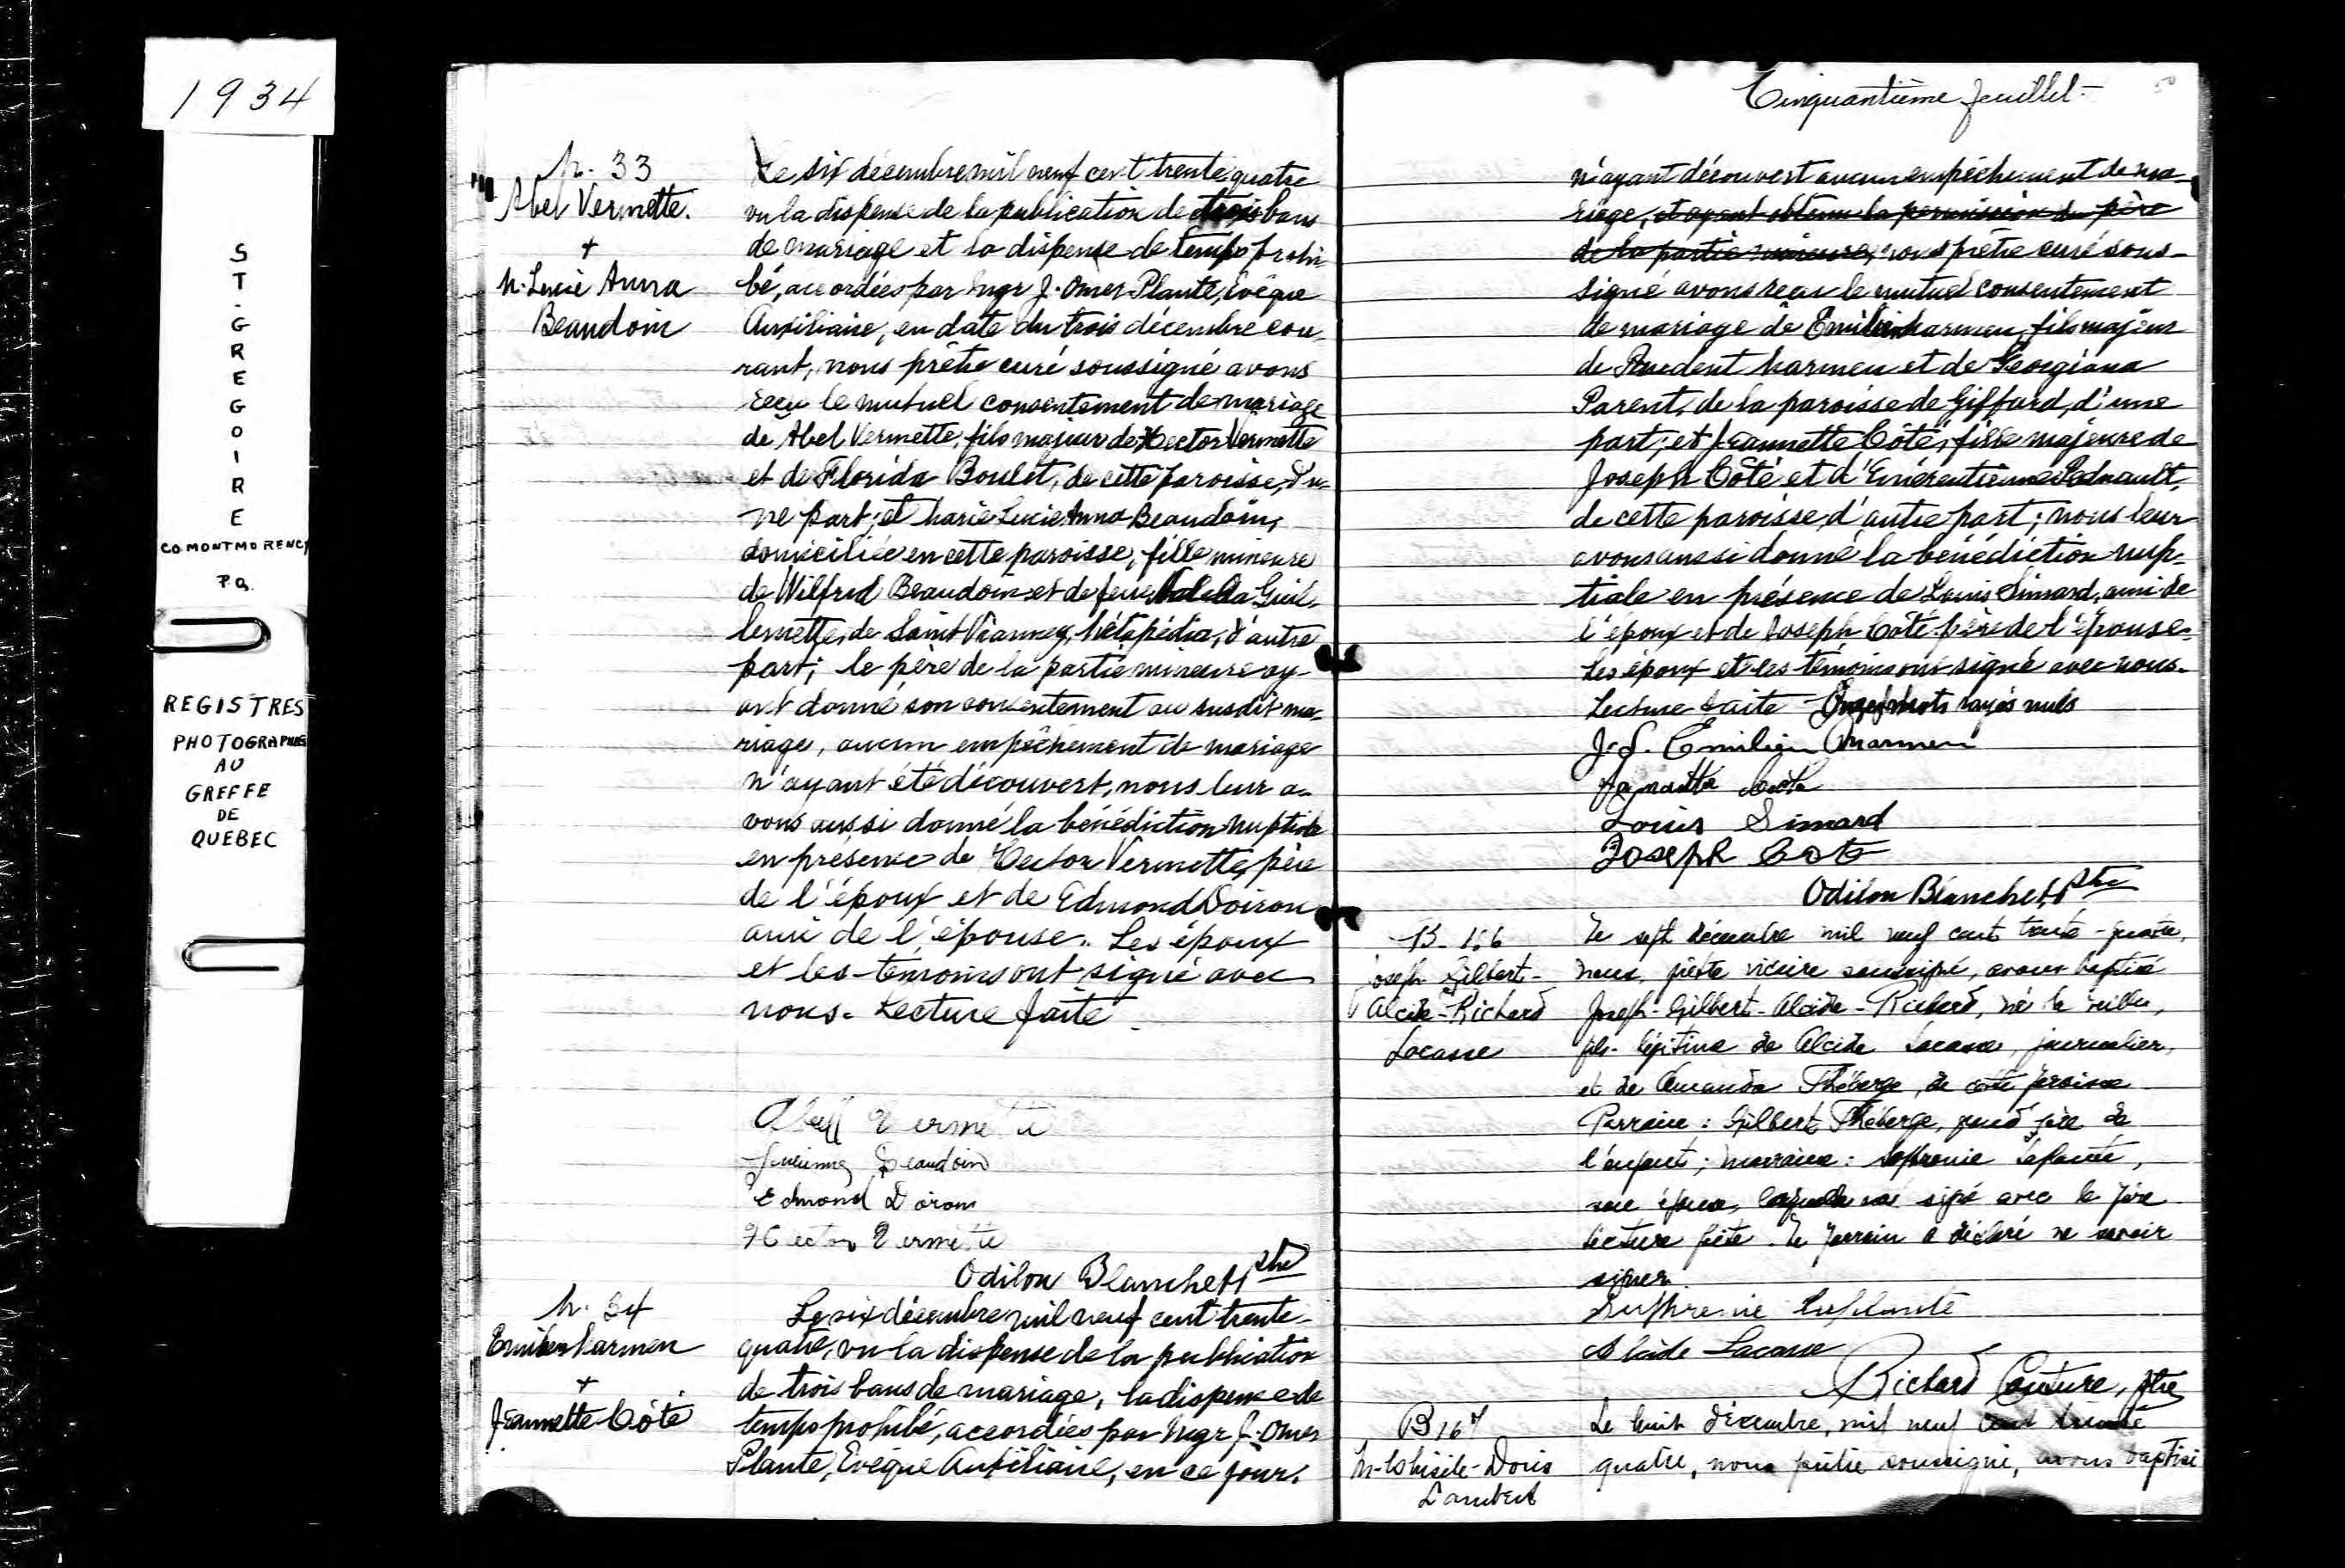 1934
ST-GREGOIRE
CO. MONTMORENCY
P.Q.
REGISTRES
PHOTOGRAPHIES
AU
GREFFE
DE
QUEBEC
M. 33
Abel Vermette.
+
M. Lucie Anna
Beaudoin
Le six décembre mil neuf cent trente quatre
vu la dispense de la publication de trois bans
de mariage et la dispense de temps prohi-
bé, accordées par Mgr J. Omer Plante, Évêque
Auxiliaire, en date du trois décembre cou-
rant, nous prêtre curé soussigné avons
reçu le mutuel consentement de mariage
de Abel Vermette, fils majeur de Hector Vermette
et de Florida Boulet, de cette paroisse, d'u-
ne part; et Marie Lucie Anna Beaudoin,
domiciliée en cette paroisse, fille mineure
de Wilfred Beaudoin et de feue Guil-
lemette, de Saint Vianney, Métapédia, d'autre
part; le père de la partie mineure ay-
ant donné son consentement au susdit ma-
riage, aucun empêchement de mariage
n'ayant été découvert, nous leur a-
vons aussi donné la bénédiction nuptiale
en présence de Hector Vermette, père
de l'époux et de Edmond Doiron
ami de l'épouse. Les époux
et les témoins ont signé avec
nous. Lecture faite.
Abell Vermette
Beaudoin
Edmond Doiron
Hector Vermette
Odilon Blanchet ptre
M. 34
Emilien Marmen
+
Jeannette Côté
Le six décembre mil neuf cent trente-
quatre, vu la dispense de la publication
de trois bans de mariage, la dispense de
temps prohibé, accordées par Mgr J. Omer
Plante, Évêque Auxiliaire, en ce jour,
Cinquantième feuillet -
50
n'ayant découvert aucun empêchement de ma-
riage, et ayant obtenu la permission du père
de la partie mineure, nous prêtre curé sous-
signé avons reçu le mutuel consentement
de mariage de Emilien Marmen, fils majeur
de Prudent Marmen et de Georgiana
Parent, de la paroisse de Giffard, d'une
part; et Jeannette Côté, fille majeure de
Joseph Côté et d'Emérentienne Pednault,
de cette paroisse, d'autre part; nous leur
avons aussi donné la bénédiction nup-
tiale en présence de Louis Simard, ami de
l'époux et de Joseph Côté père de l'épouse.
Les époux et les témoins ont signé avec nous.
Lecture faite Onze mots rayés nuls
J. S. Emilien Marmen
Jeannette Coté
Louis Simard
Joseph Coté
Odilon Blanchet ptre
B. 166
Joseph Gilbert-
Alcide-Richard
Lacasse
Le sept décembre mil neuf cent trente-quatre,
nous, prêtre vicaire soussigné, avons baptisé
Joseph-Gilbert-Alcide-Richard, né la veille,
fils légitime de Alcide Lacasse, journalier,
et de Amanda Théberge, de cette paroisse
Parrain: Gilbert Théberge, grand père de
l'enfant; marraine: Laplante,
son épouse, laquelle a signé avec le père
lecture faite. Le parrain a déclaré ne savoir
signer.
Laplante
Alcide Lacasse
Richard Couture, ptre
B 167
M-Doris
Lambert
Le huit décembre, mil neuf cent trente
quatre, nous prêtre soussigné, avons baptisé